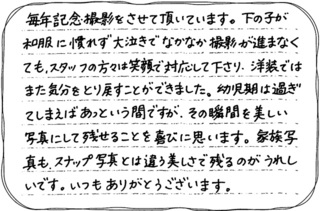 毎年記念撮影をさせて頂いています。下の子が
和服に慣れず大泣きでなかなか撮影が進まなく
ても、スタッフの方々は笑顔で対応して下さり、洋装では
また気分をとり戻すことができました。幼児期は過ぎ
てしまえばあっという間ですが、その瞬間を美しい
写真にして残せることを喜びに思います。家族写
真も、スナップ写真とは違う美しさで残るのがうれし
いです。いつもありがとうございます。